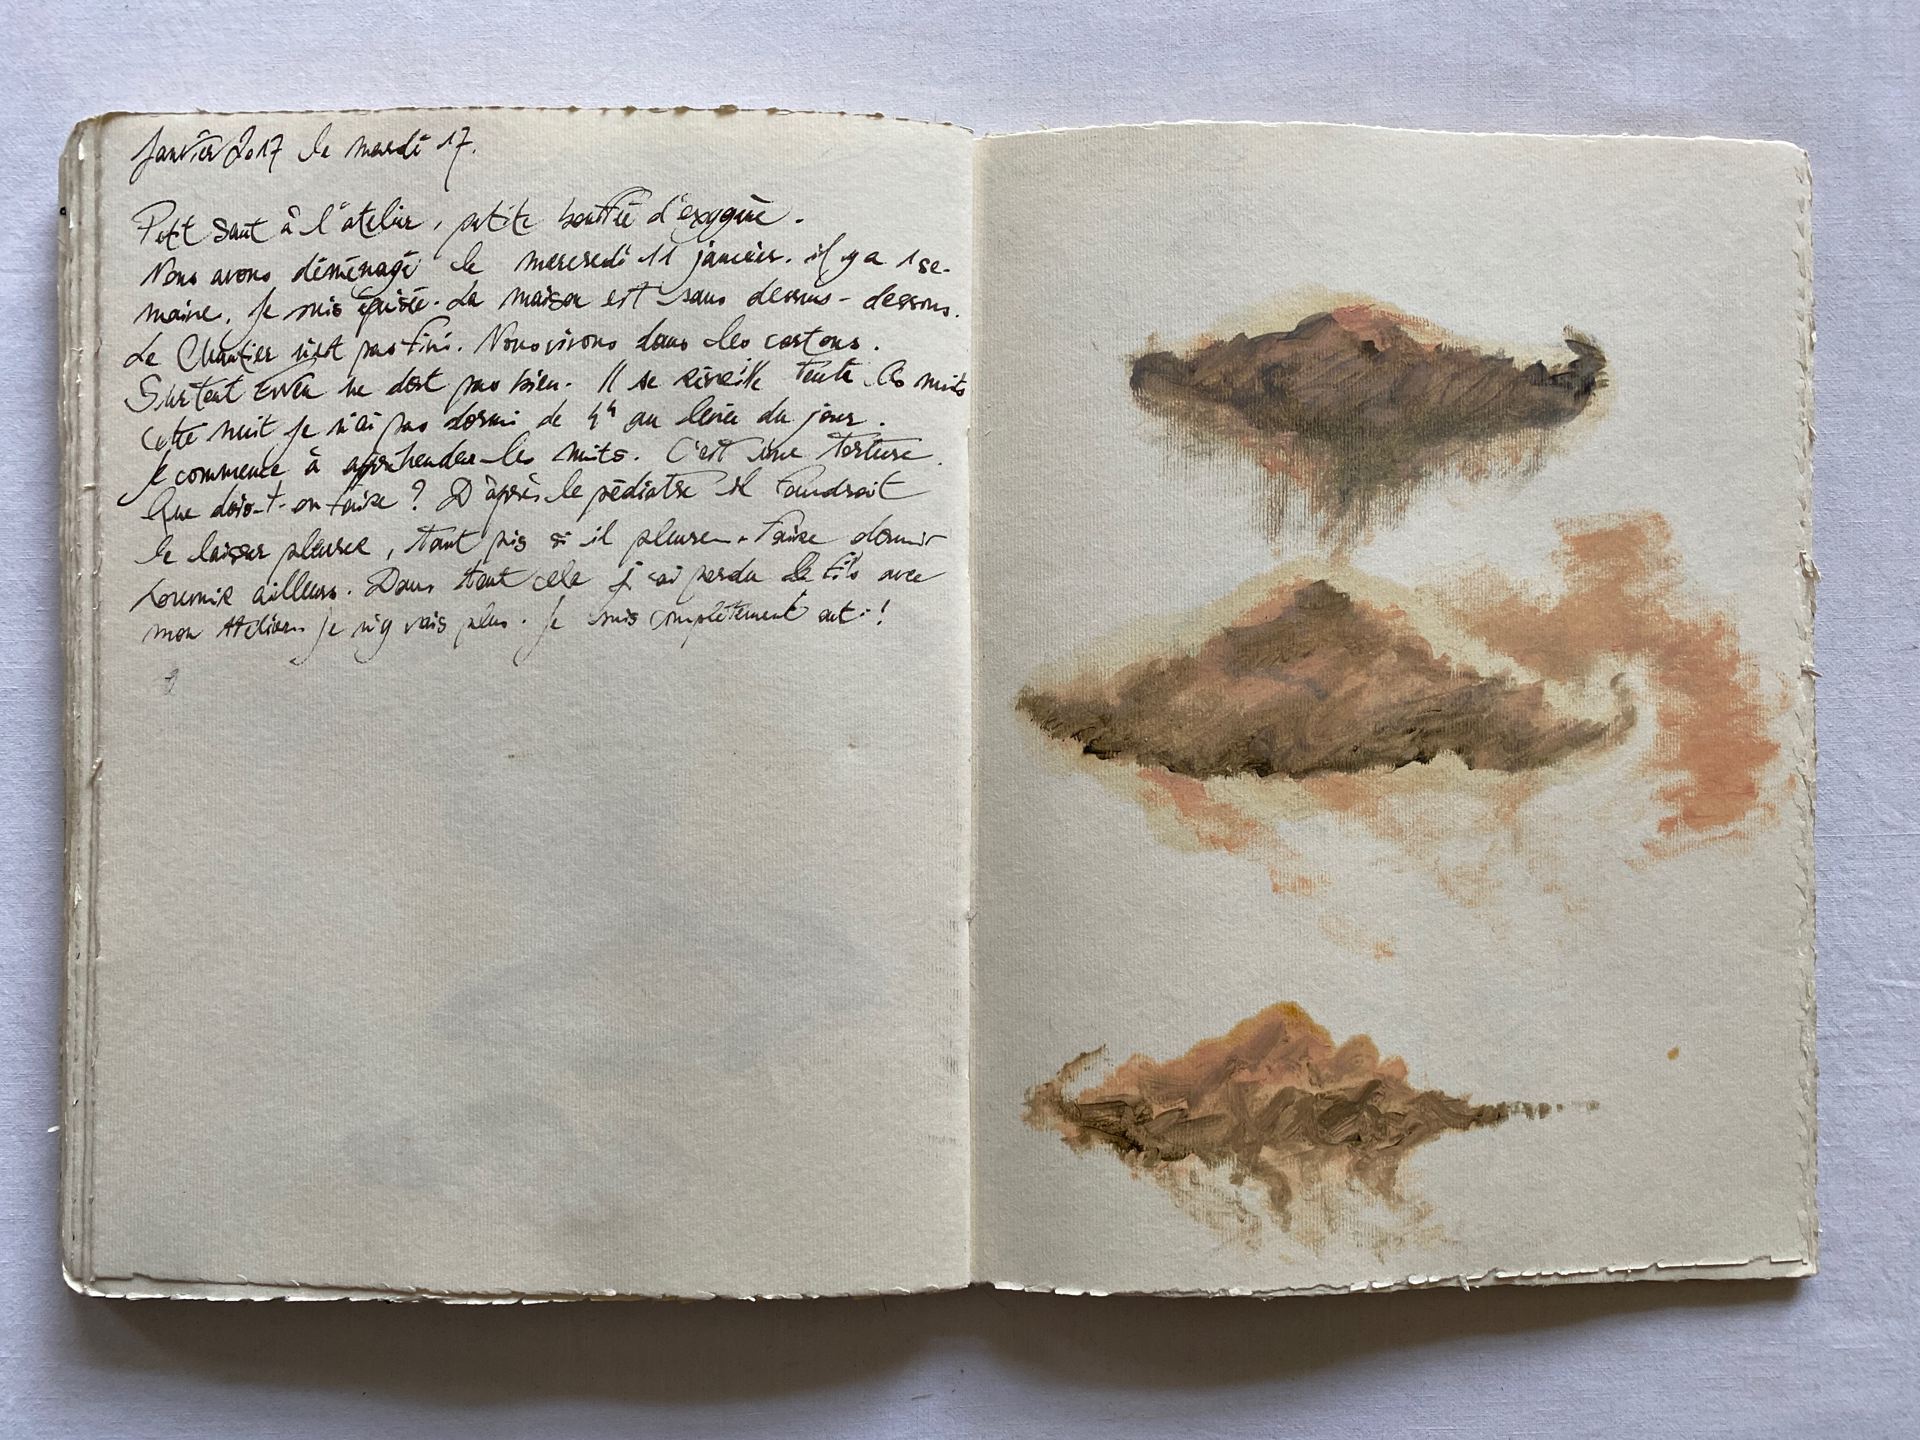 Janvier 2017 le mardi 17.
Petit saut à l'atelier, petite bouffée d'oxygène.
Nous avons déménagé le mercredi 11 janvier. il y a 1 se-
maine. Je suis épuisée. La maison est sans dessus-dessous.
Le Chantier n'est pas fini. Nous vivons dans des cartons.
Surtout ne dort pas bien. Il se réveille toute les nuits
cette nuit je n'ai pas dormi de 4h au levée du jour.
Je commence à appréhender les nuits. C'est une torture.
Que doit-on faire ? D'après le pédiatre il faudrait
le laisser pleurer, tant pis si il pleure. Faire dormir
ailleurs. Dans tout cela j'ai perdu le fils avec
mon Atelier. Je n'y vais plus. Je suis complètement out !